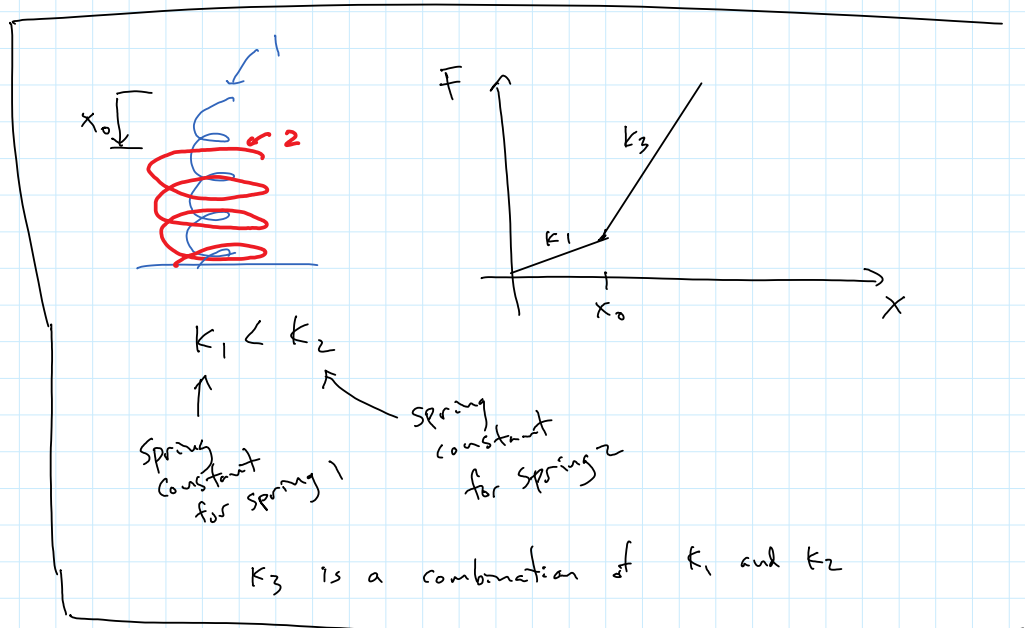 1
x₀
2
F
K3
K1
x₀
X
K₁ < K₂
spring
constant
for spring 1
spring
constant
for spring 2
K3 is a combination of K₁ and K₂